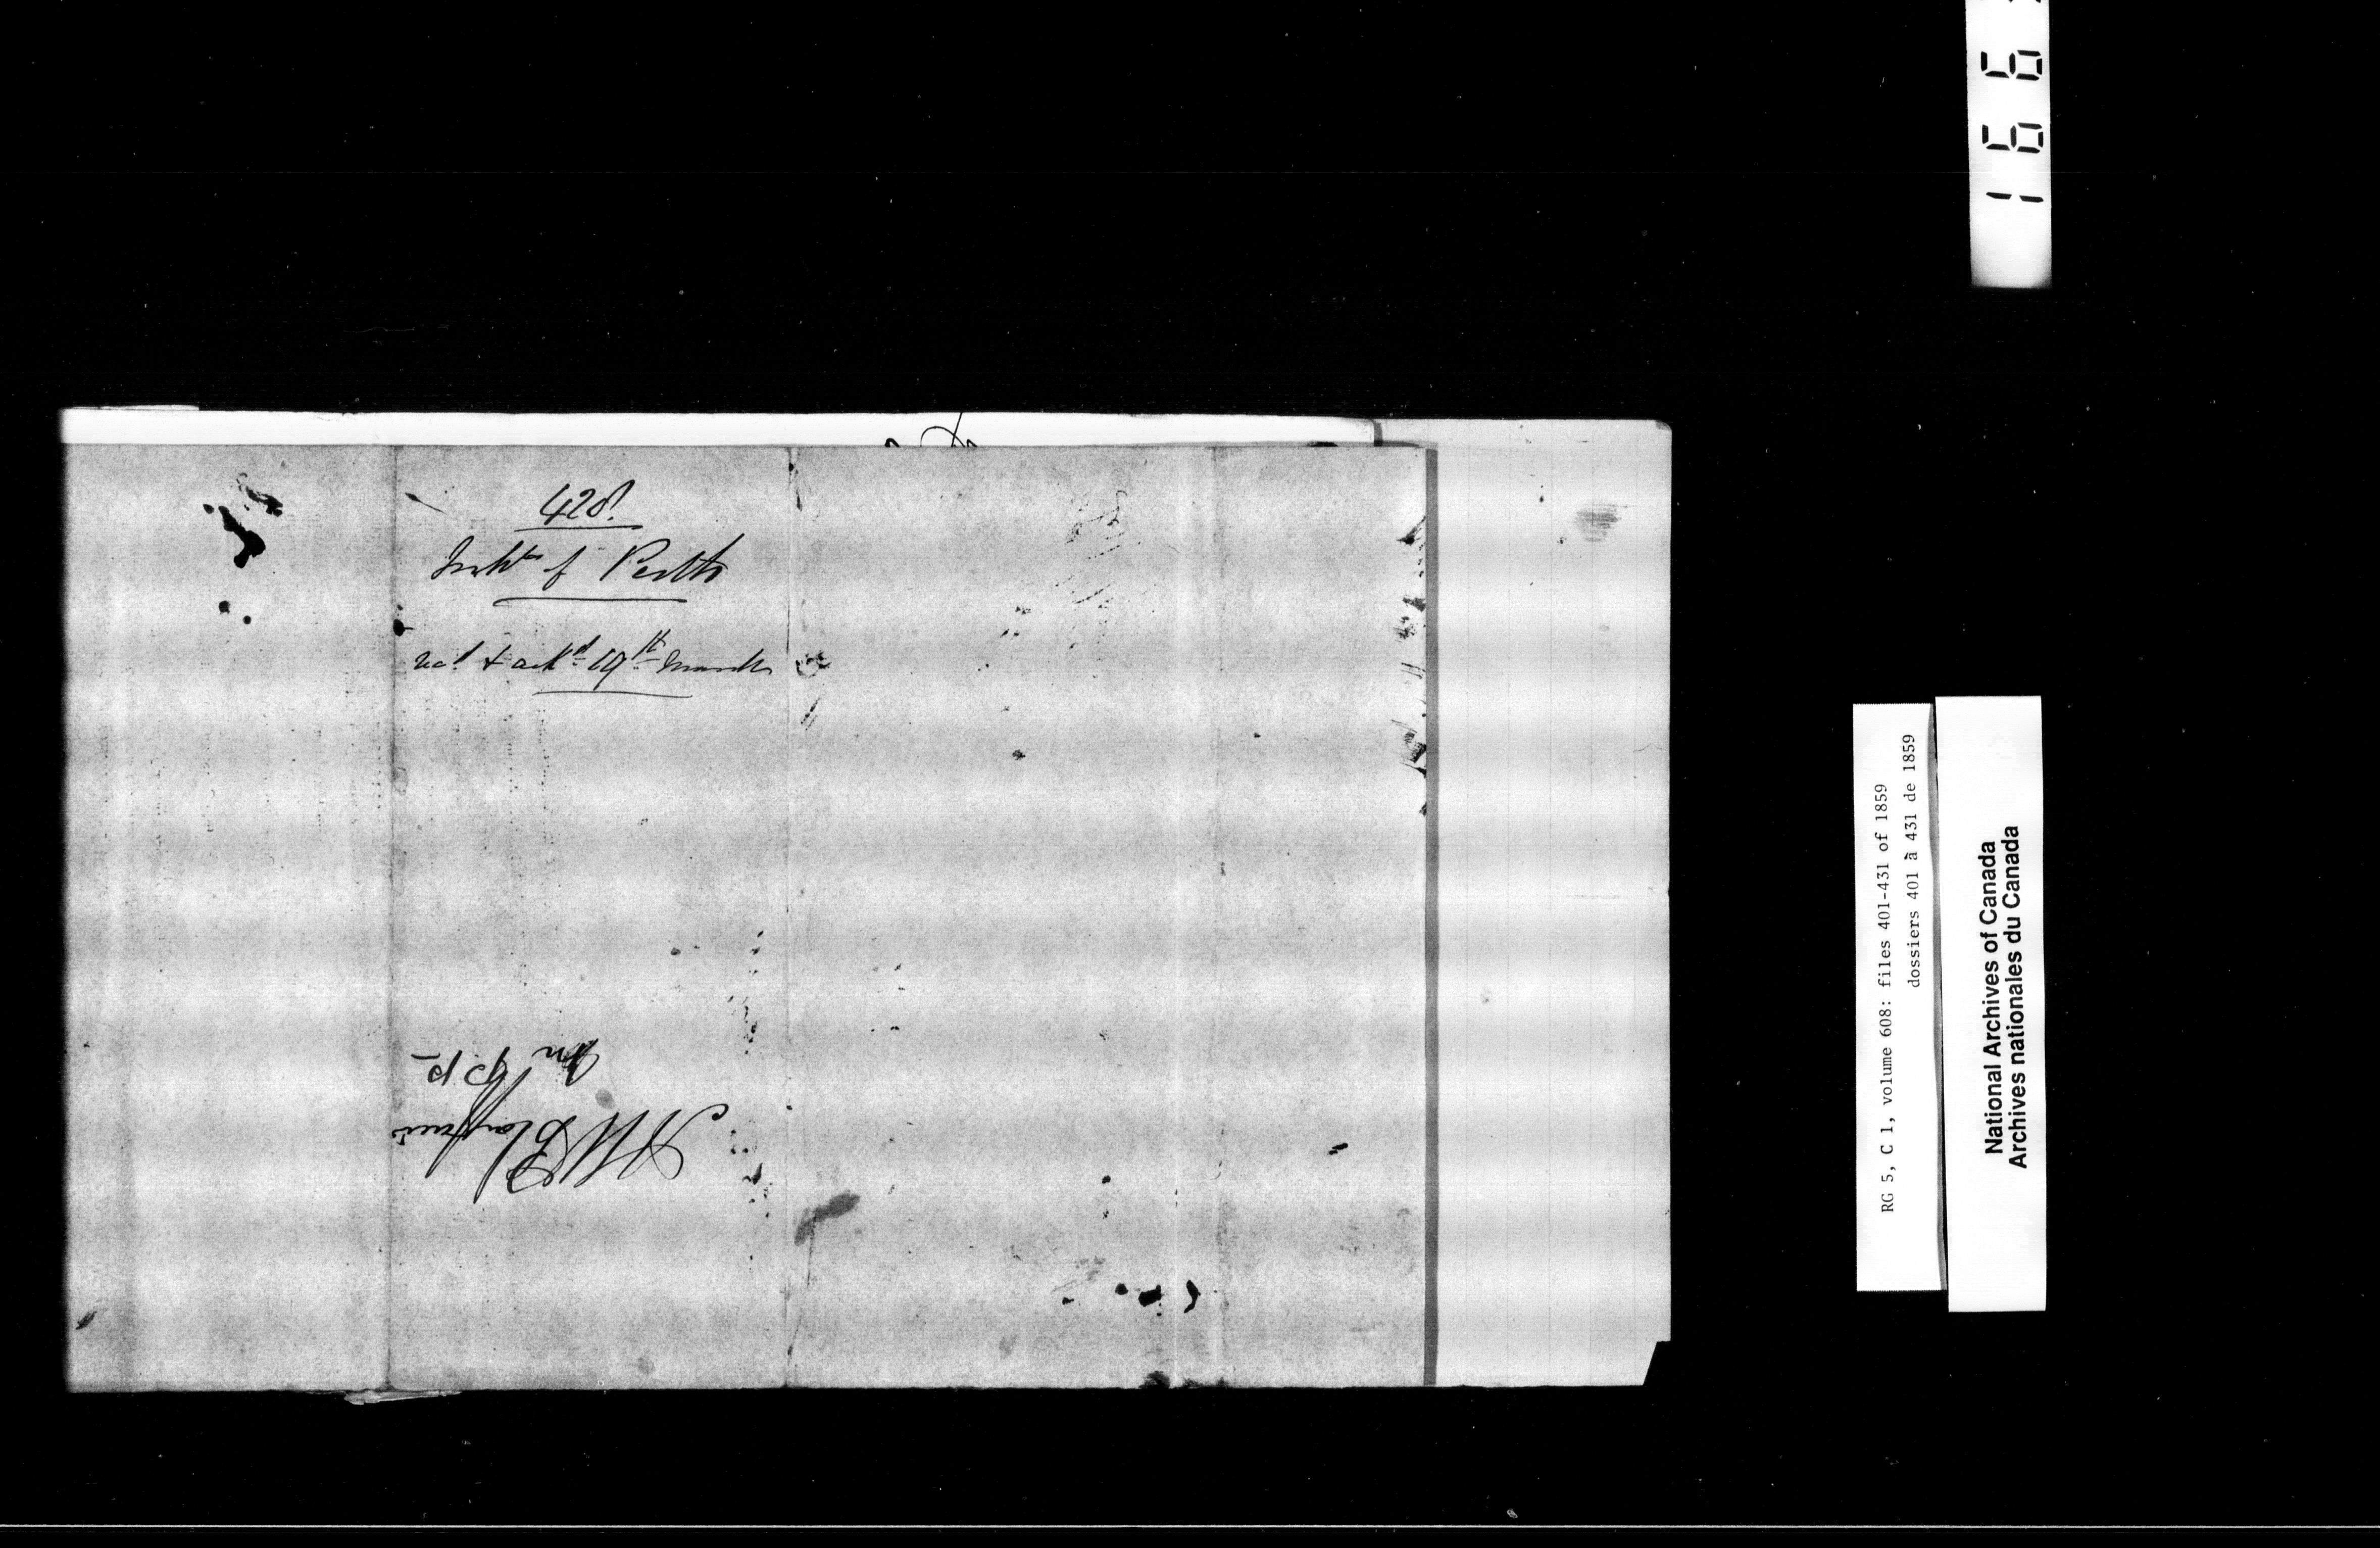 428.
Inhts of Perth
recd & ackd 19th March
A W Playfair
M P P
RG 5, C 1, volume 608: files 401-431 of 1859
dossiers 401 à 431 de 1859
National Archives of Canada
Archives nationales du Canada
1 6 6